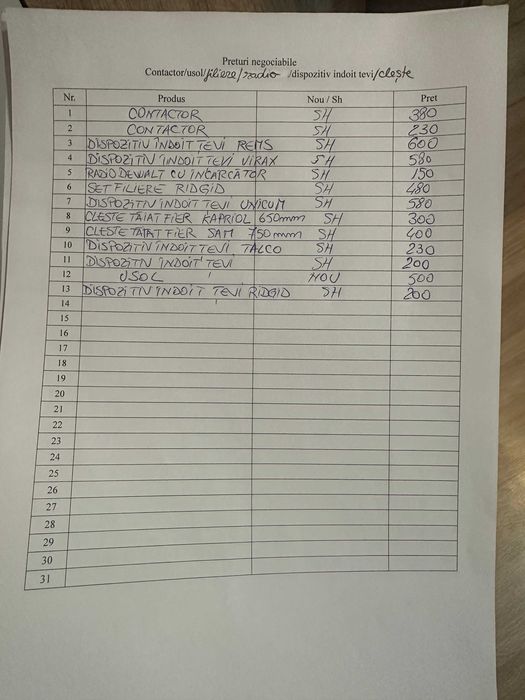 Preturi negociabile
Contactor/usol/filiere/radio /dispozitiv indoit tevi/clește
Nr. Produs Nou / Sh Pret
1 CONTACTOR SH 380
2 CONTACTOR SH 230
3 DISPOZITIV ÎNDOIT TEVI REMS SH 600
4 DISPOZITIV ÎNDOIT TEVI VIRAX SH 580
5 RADIO DEWALT CU INCARCĂTOR SH 150
6 SET FILIERE RIDGID SH 480
7 DISPOZITIV ÎNDOIT TEVI UNICUM SH 580
8 CLESTE TĂIAT FIER KAPRIOL 650mm SH 300
9 CLESTE TĂIAT FIER SAM 750mm SH 400
10 DISPOZITIV ÎNDOIT TEVI TALCO SH 230
11 DISPOZITIV ÎNDOIT TEVI SH 200
12 USOL NOU 500
13 DISPOZITIV ÎNDOIT TEVI RIDGID SH 200
14
15
16
17
18
19
20
21
22
23
24
25
26
27
28
29
30
31